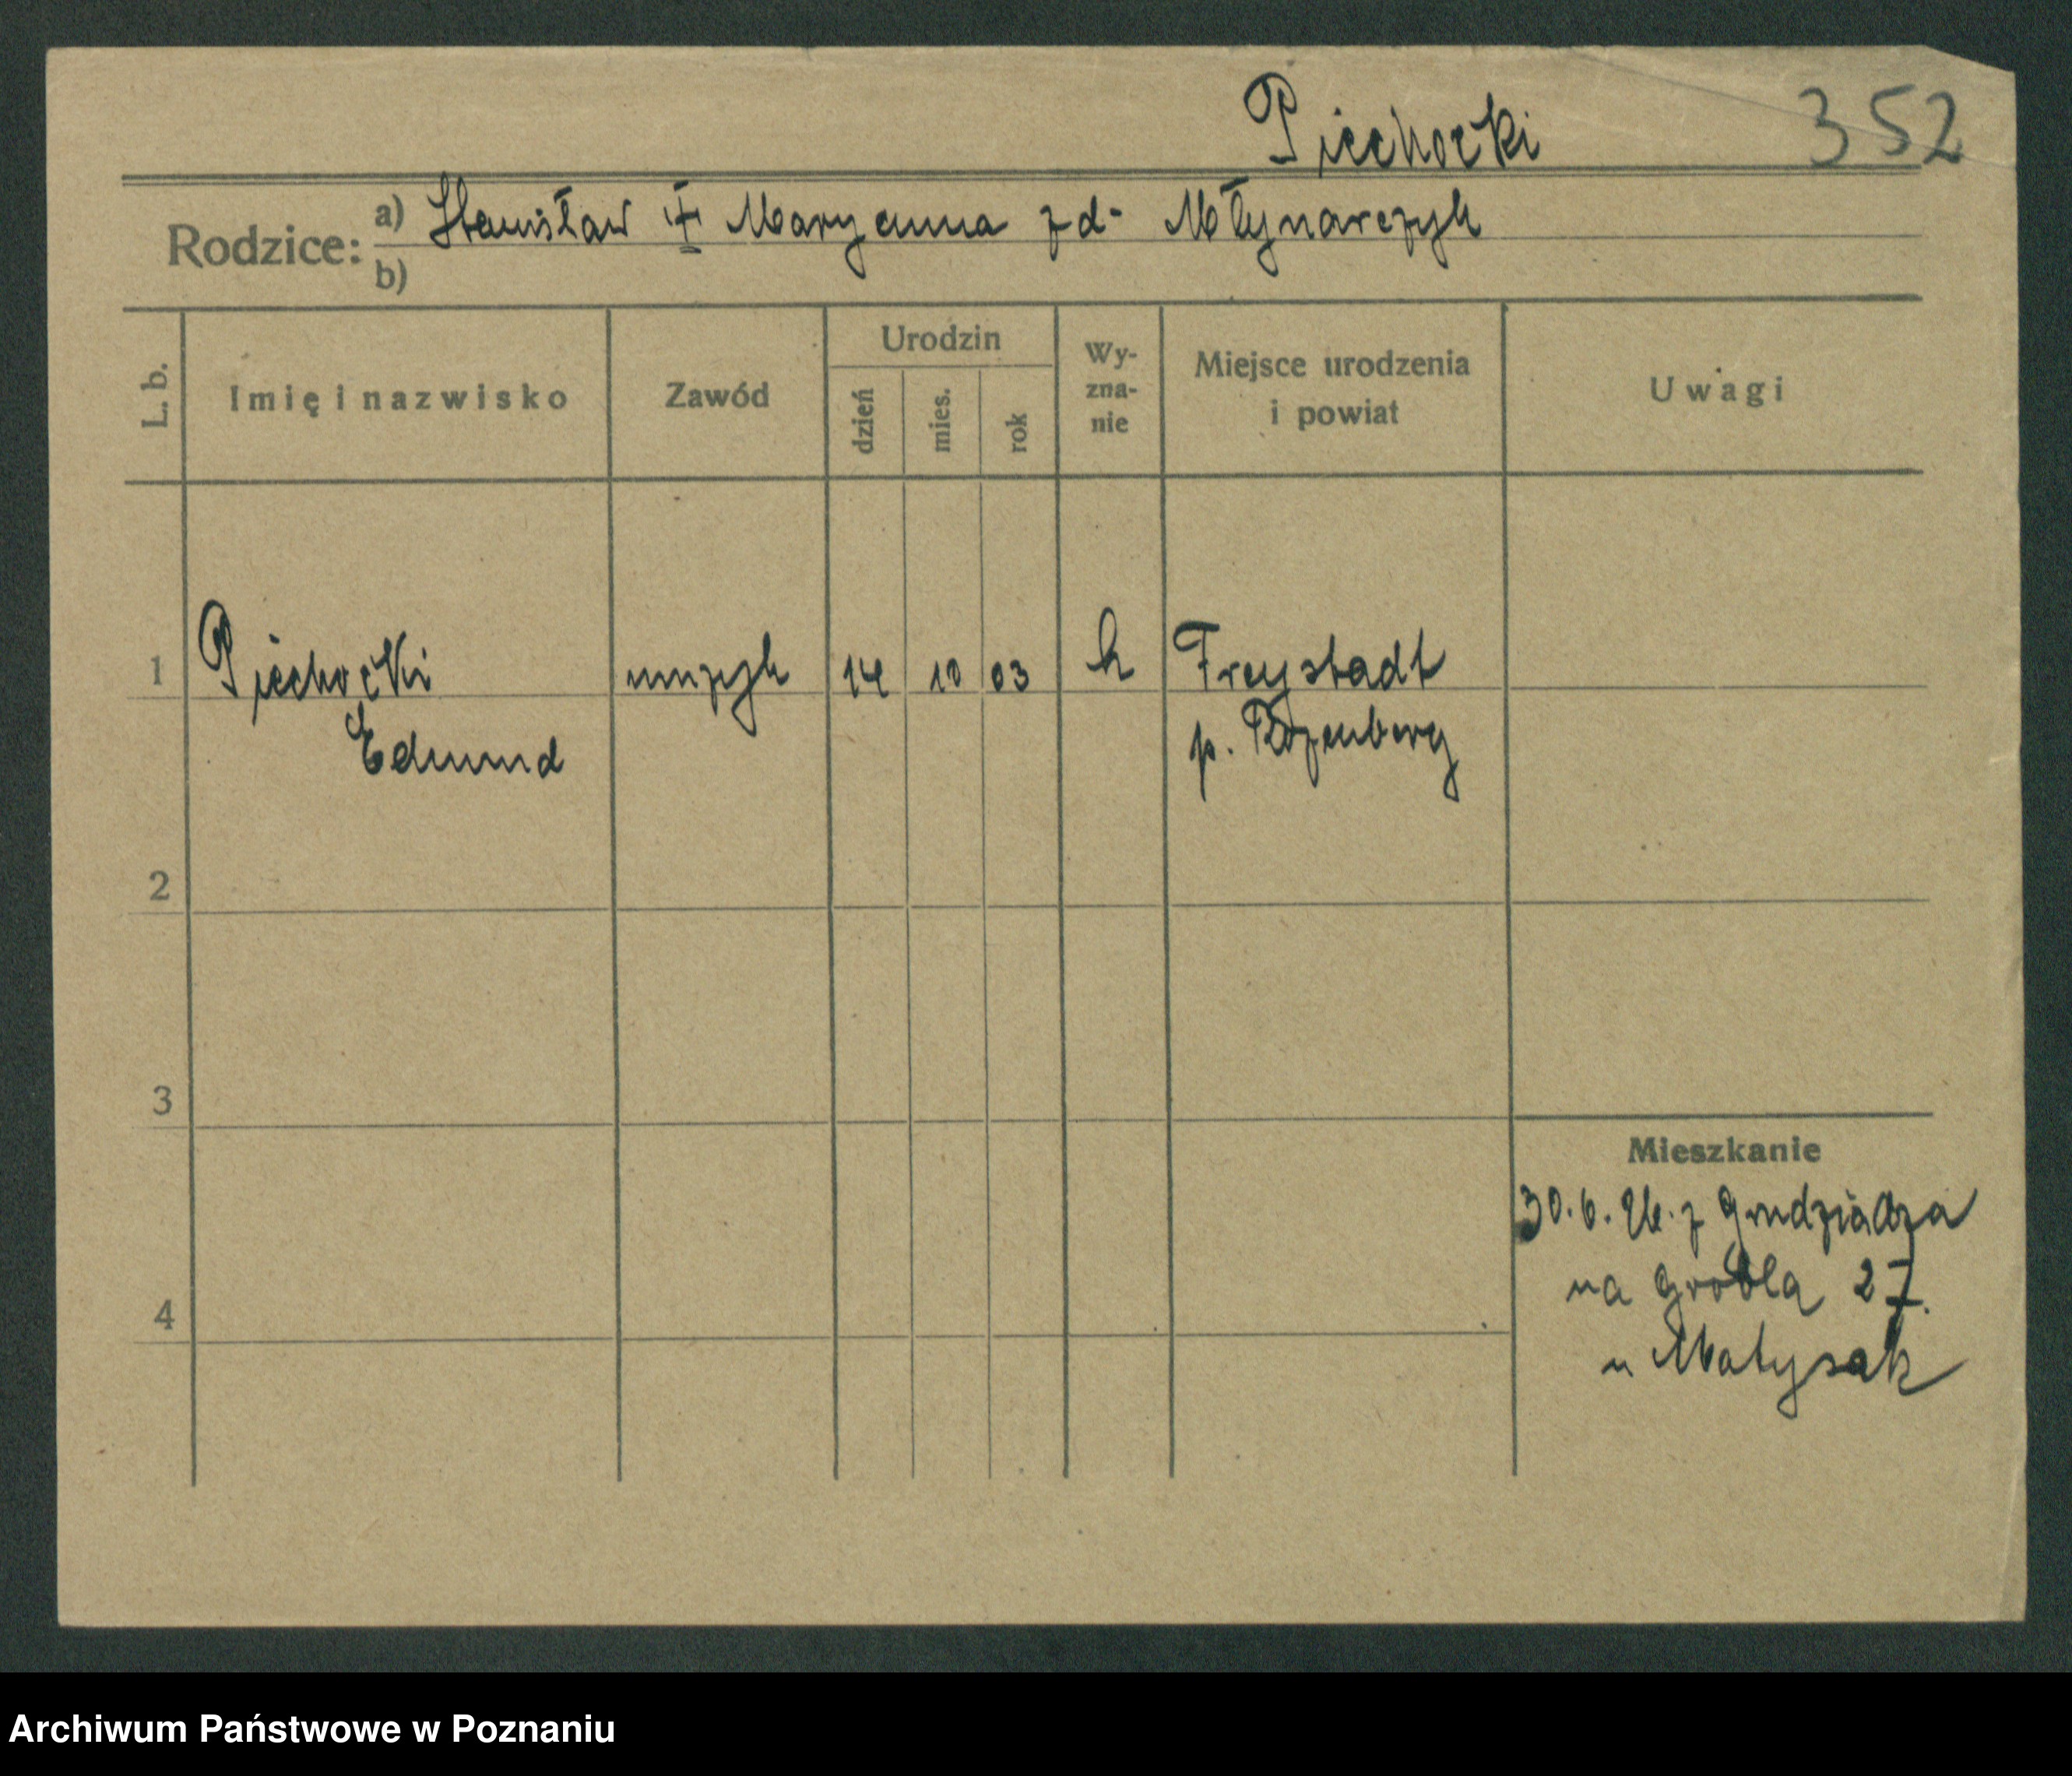 Piechocki 352
Rodzice: a) Stanisław i Maryanna zd. Młynarczyk
b)
L. b. Imię i nazwisko Zawód Urodzin dzień mies. rok Wy-zna-nie Miejsce urodzenia i powiat Uwagi
1 Piechocki muzyk 14 10 03 k Freystadt
Edmund p. Rozenberg
2
3
Mieszkanie
30. 6. 26. z Grudziądza
4 na Grobla 27.
u Matysak
Archiwum Państwowe w Poznaniu